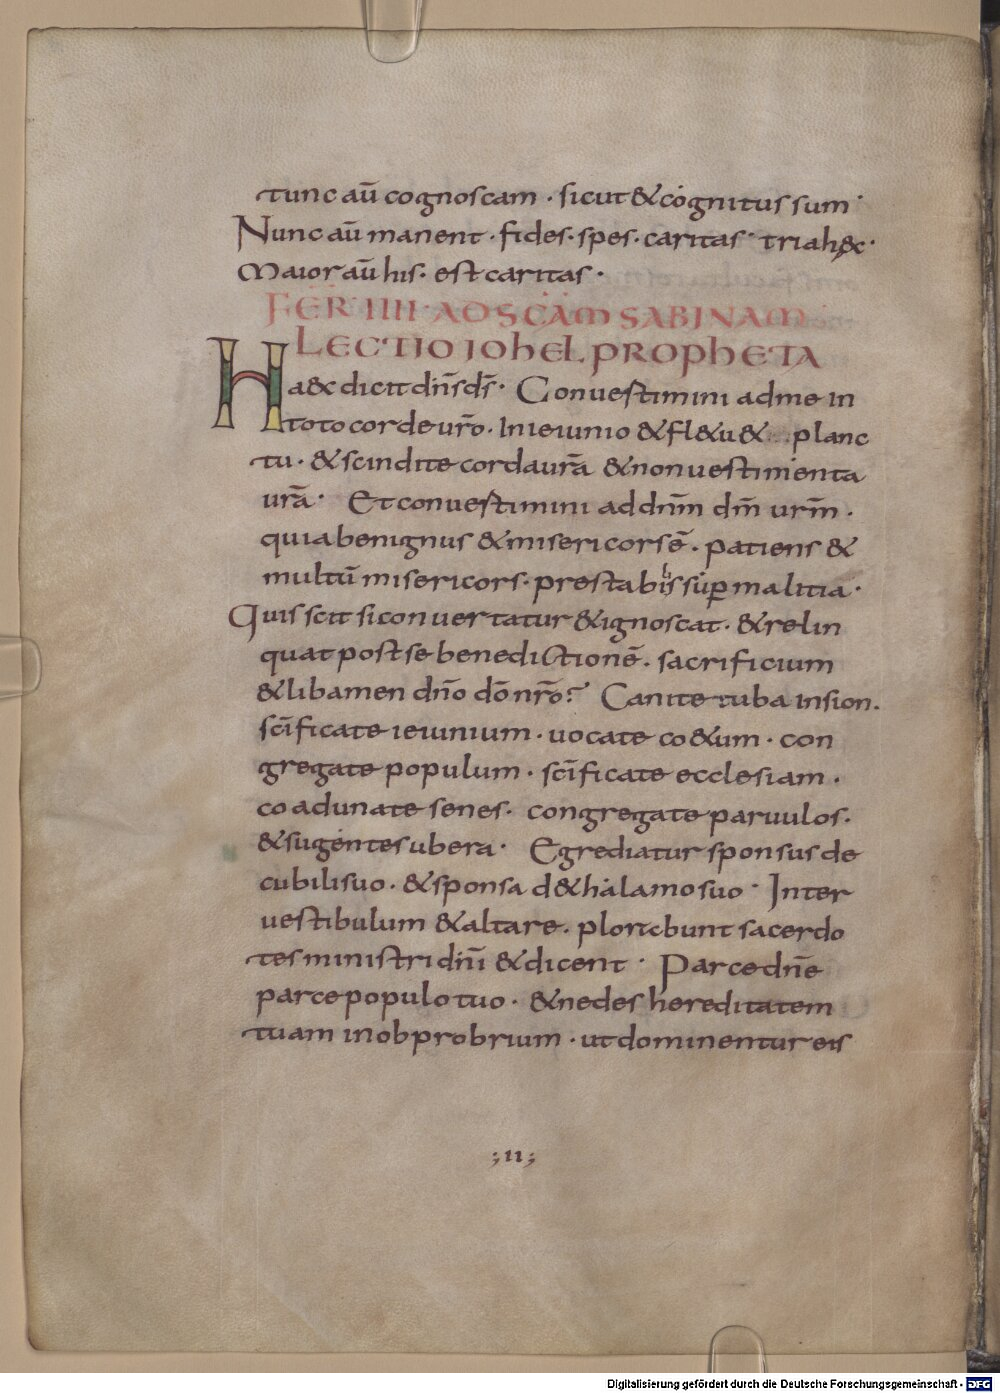 tunc aū cognoscam · sicut & cognitus sum·
Nunc aū manent · fides · spes · caritas · tria h&c·
Maior aū his · est caritas ·
FER IIII · AD SCAM SABINAM
LECTIO IOHEL PROPHETA
Ha&c dicit dn̄s ds̄ · Convestimini ad me in
toto corde ur̄o · In ieiunio & fl&u & planc
tu · & scindite corda ur̄a & non uestimenta
ur̄a · Et convestimini ad dnm̄ dm̄ urm̄ ·
quia benignus & misericors ē · patiens &
multū misericors · prestabilis sup malitia ·
Quis scit si convertatur & ignoscat · & relin
quat post se benedictionē · sacrificium
& libamen dn̄o dō nr̄o? Canite tuba in sion ·
scīficate ieiunium · uocate co&um · con
gregate populum · scīficate ecclesiam ·
coadunate senes · congregate paruulos ·
& sugentes ubera · Egrediatur sponsus de
cubili suo · & sponsa d& halamo suo · Inter
vestibulum & altare · plorebunt sacerdo
tes ministri dn̄i & dicent · Parce dn̄e
parce populo tuo · & ne des hereditatem
tuam in obprobrium · ut dominentur eis
;11;
Digitalisierung gefördert durch die Deutsche Forschungsgemeinschaft - DFG